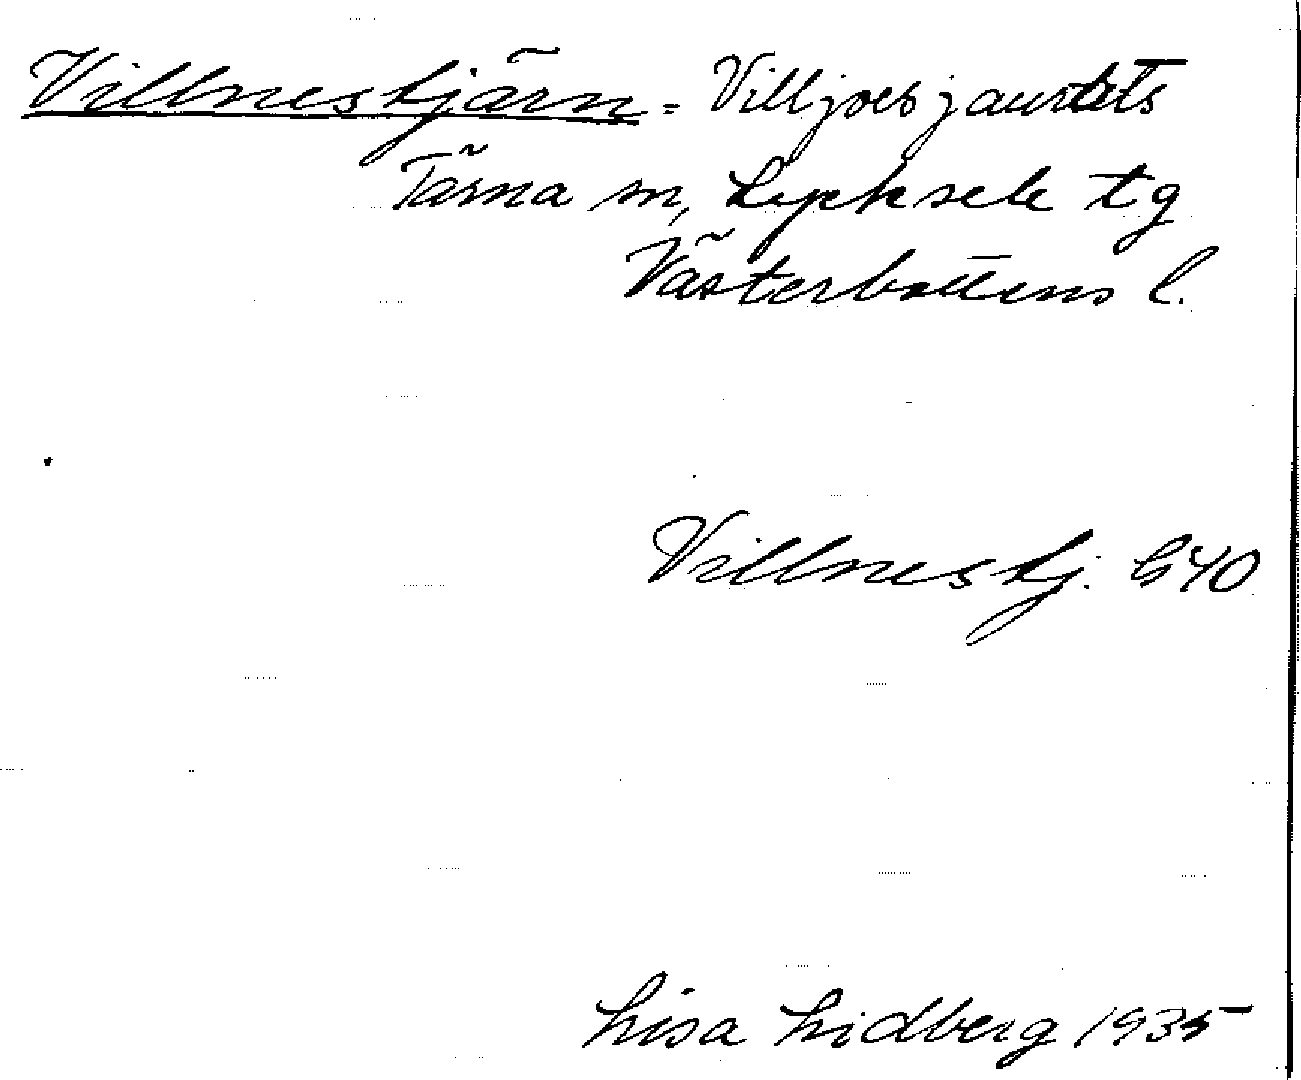 Villnestjärn = Villjoesjaurats
Tärna sn, Lycksele tg
Västerbottens l.
Villnestj. G40
Lisa Lidberg 1935